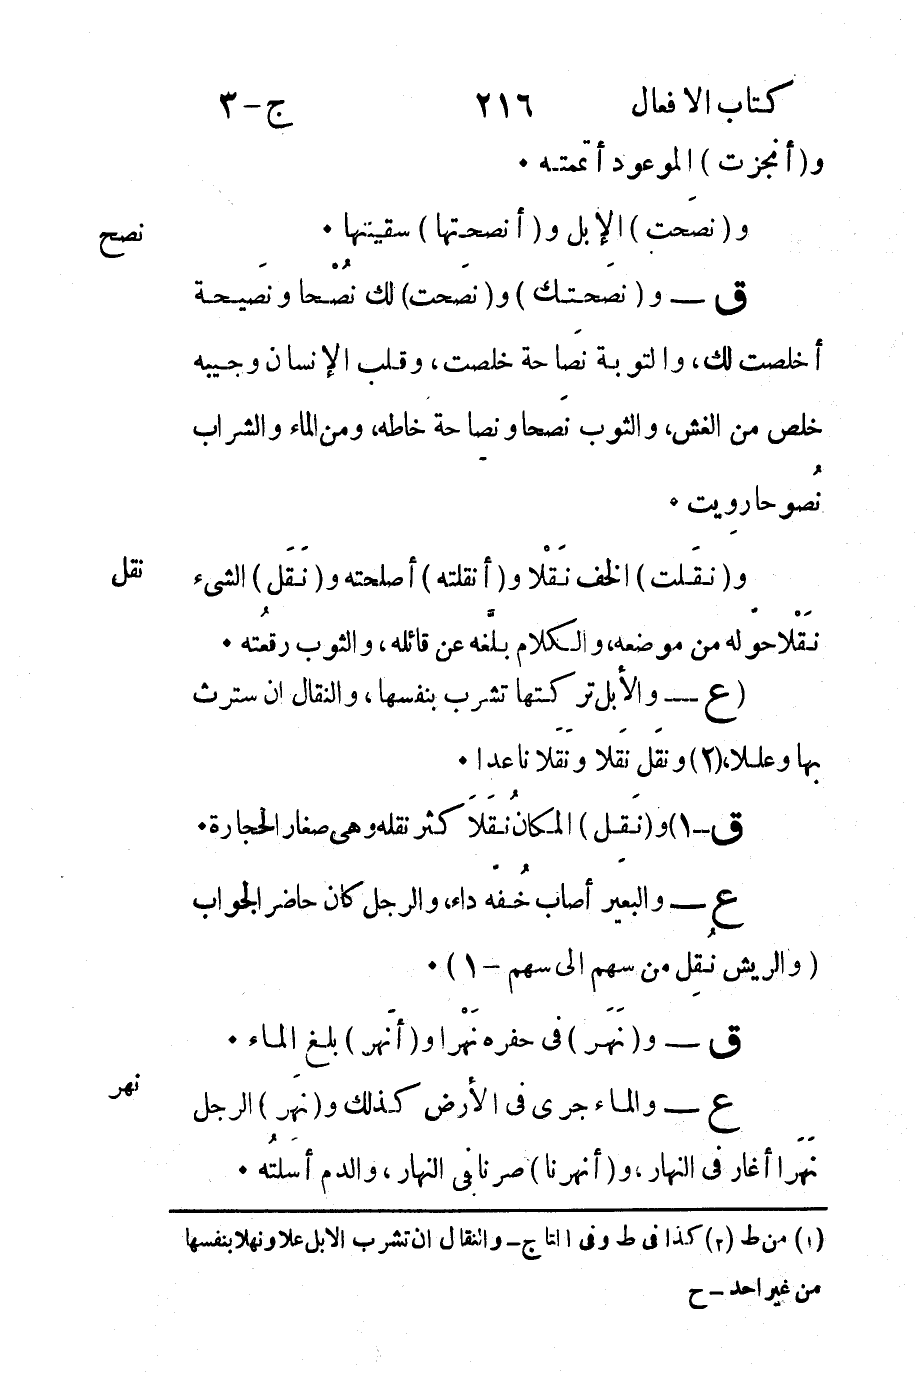 كتاب الافعال ٢١٦ ج-٣
و(أنجزت) الموعود أتممته ٠
نصح
و(نصَحت) الإبل و(أنصحتها) سقيتها ٠
ق — و(نصَحتك) و(نصَحت) لك نُصْحا ونصَيحة
أخلصت لك، والتوبة نَصاحة خلصت، وقلب الإنسان وجيبه
خلص من الغش، والثوب نَصحا ونِصاحة خاطه، ومن الماء والشراب
نُصوحا رويت ٠
نقل
و(نقَلت) الخف نَقْلا و(أنقلته) أصلحته و(نَقَل) الشىء
نَقْلا حوّله من موضعه، والكلام بلَّغه عن قائله، والثوب رقعتُه ٠
(ع — والأبل تركتها تشرب بنفسها، والنقال ان سترث
بها وعللا،(٢) ونقَل نَقَلا ونَقَلا ناعدا ٠
ق-١) و(نَقِل) المكانُ نَقَلاَ كثر نقله وهى صغار الحجارة ٠
ع — والبعير أصاب خُفّه داء، والرجل كان حاضر الجواب
(والريش نُقِل من سهم الى سهم -١) ٠
نهر
ق — و(نَهَر) فى حفره نَهْرا و(أنهر) بلغ الماء ٠
ع — والماء جرى فى الأرض كذلك و(نهَر) الرجل
نَهَرا أغار فى النهار، و(أنهرنا) صرنا فى النهار، والدم أسَلتُه ٠
(١) من ط (٢) كذا فى ط وفى التاج- والنقال ان تشرب الابل علا ونهلا بنفسها
من غير احد - ح